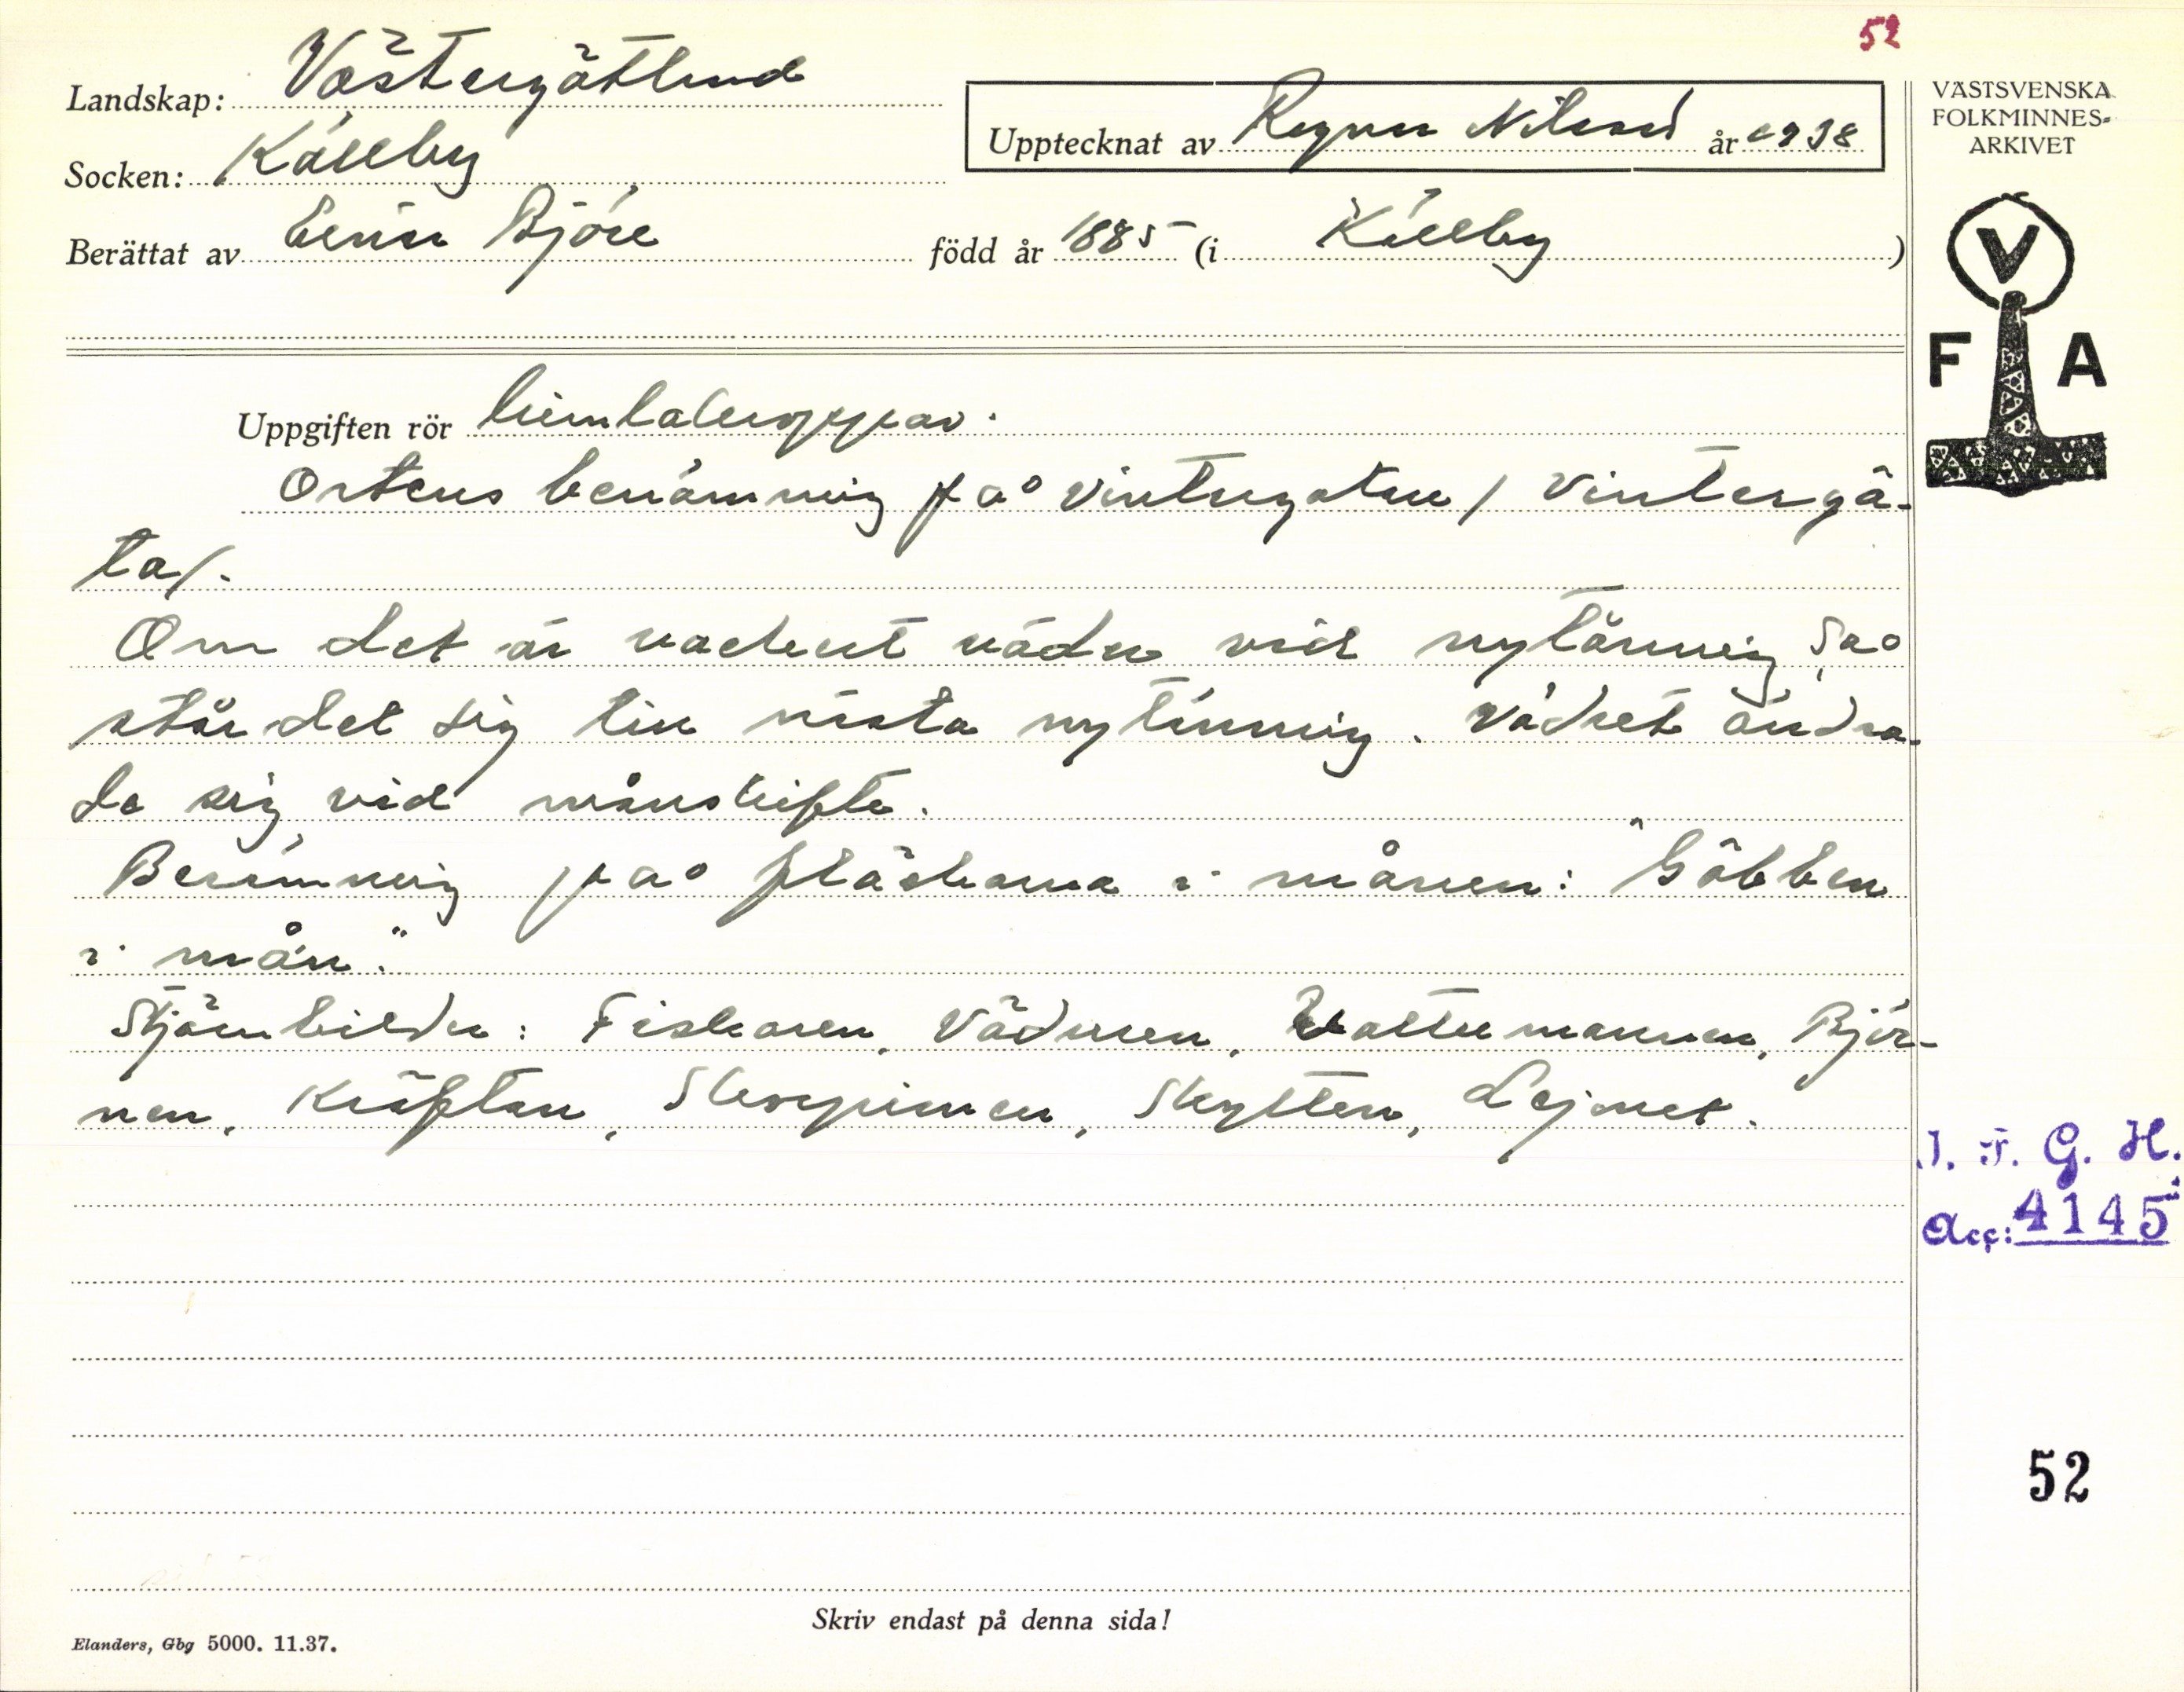 52
Landskap: Västergötland
Socken: Källby
Berättat av Elin Björe född år 1885 (i Källby)
Upptecknat av Ragnar Nilsson år 1938
VÄSTSVENSKA
FOLKMINNES-
ARKIVET
V
F A
Uppgiften rör himlakroppar.
Ortens benämning på vintergatan / vintergå-
ta/.
Om det är vackert väder vid nytänning så
står det sig till nästa nytänning. Vädret ändra-
de sig vid månskifte.
Benämning på fläckarna i månen: "Gôbben
i mån."
Stjärnbilder: Fiskaren, Väduren, Vattumannen, Björ-
nen, Kräftan, Skorpionen, Skytten, Lejonet.
I. F. G. H.
Acc: 4145
52
Skriv endast på denna sida!
Elanders, Gbg 5000. 11.37.